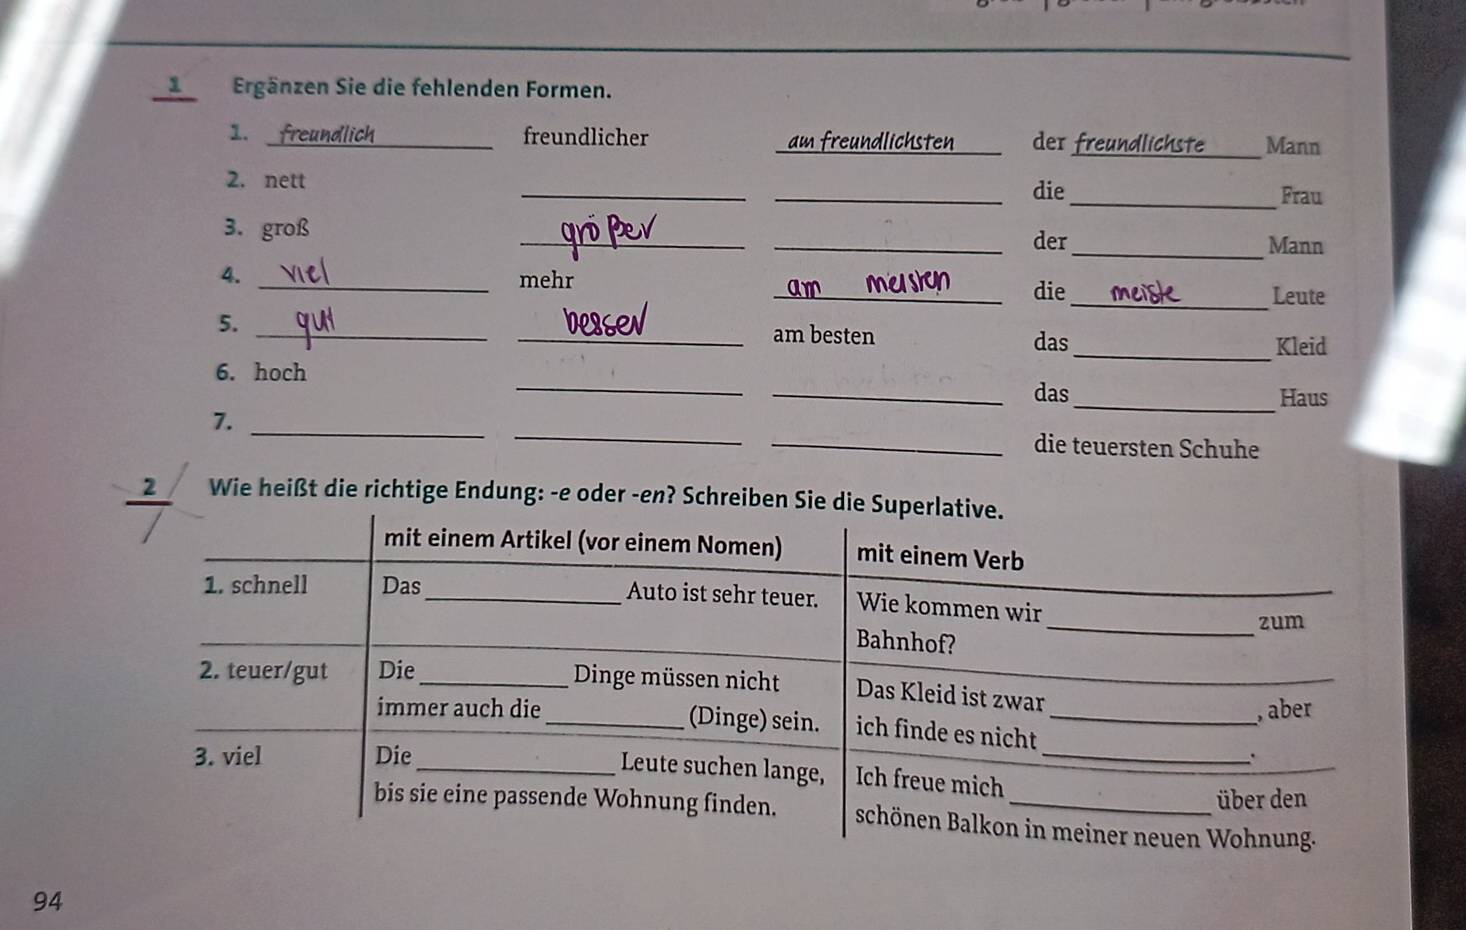 1 Ergänzen Sie die fehlenden Formen.
1. freundlich freundlicher am freundlichsten der freundlichste Mann
2. nett die Frau
3. groß größer der Mann
4. viel mehr am meisten die meiste Leute
5. gut besser am besten das Kleid
6. hoch das Haus
7. die teuersten Schuhe
2 Wie heißt die richtige Endung: -e oder -en? Schreiben Sie die Superlative.
mit einem Artikel (vor einem Nomen) mit einem Verb
1. schnell Das Auto ist sehr teuer. Wie kommen wir zum
Bahnhof?
2. teuer/gut Die Dinge müssen nicht Das Kleid ist zwar , aber
immer auch die (Dinge) sein. ich finde es nicht .
3. viel Die Leute suchen lange, Ich freue mich über den
bis sie eine passende Wohnung finden. schönen Balkon in meiner neuen Wohnung.
94